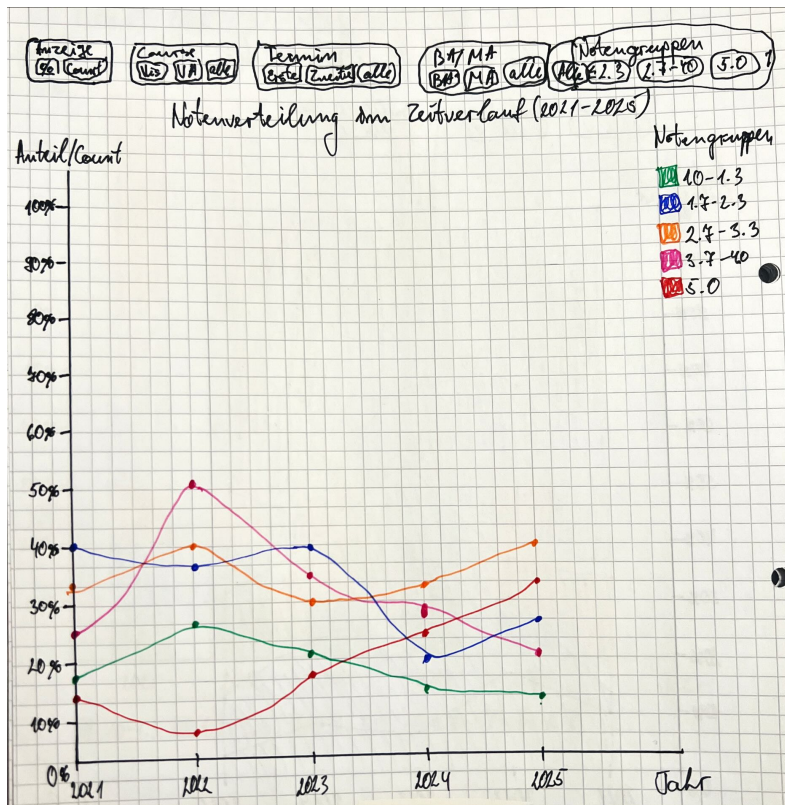 Anzeige
% Count
Course
Vis VA alle
Termin
Erste Zweite alle
BA/MA
BA MA alle
Notengruppen
Alle ≤2.3 2.7-4.0 5.0
Notenverteilung im Zeitverlauf (2021-2025)
Anteil/Count
Notengruppen
1.0-1.3
1.7-2.3
2.7-3.3
3.7-4.0
5.0
100%
90%
80%
70%
60%
50%
40%
30%
20%
10%
0%
2021 2022 2023 2024 2025 Jahr